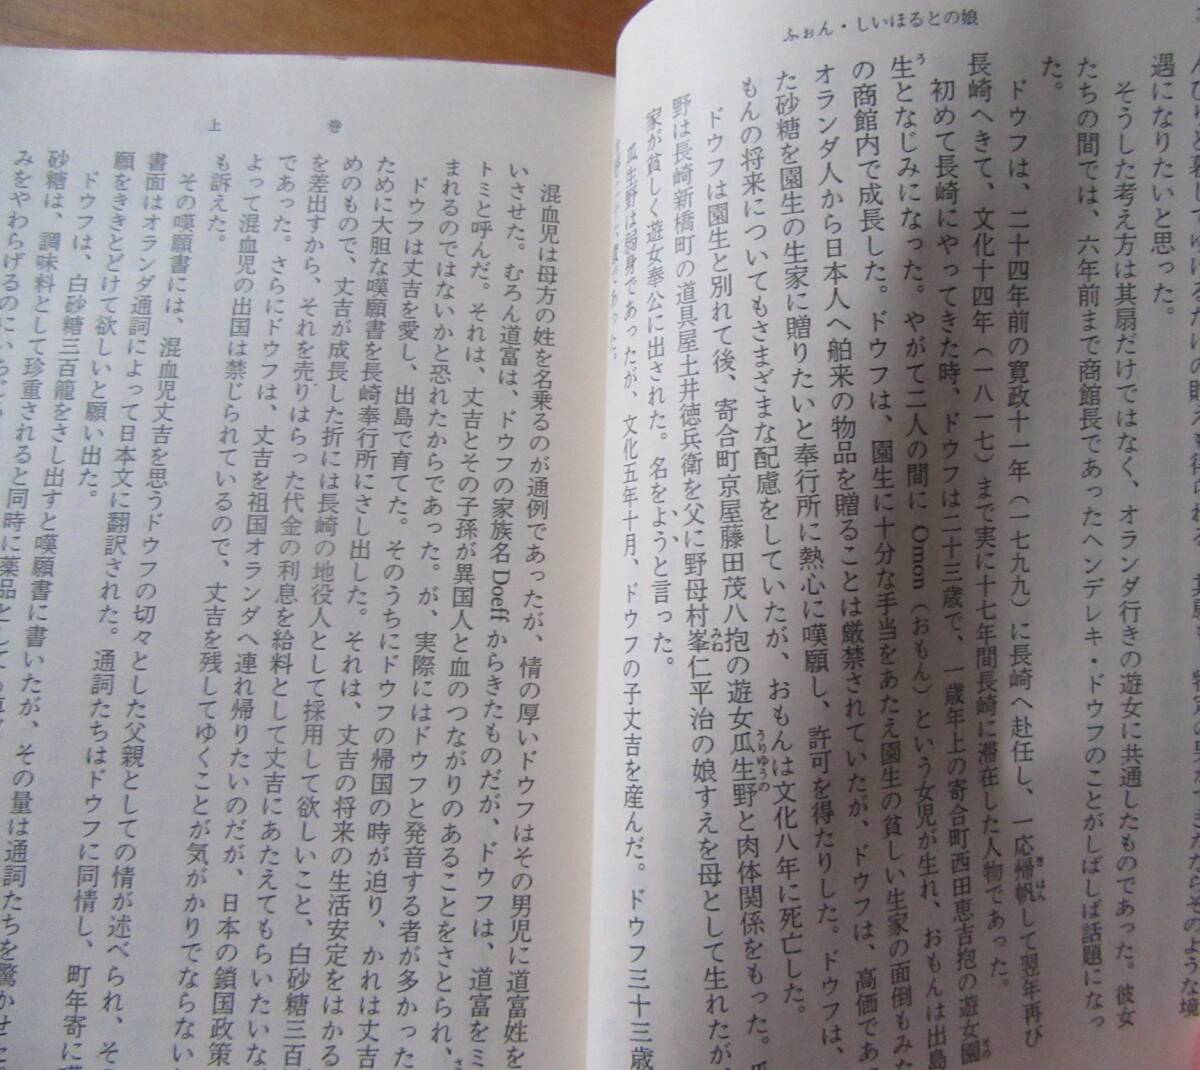 ふぉん・しいほるとの娘
遇になりたいと思った。
そうした考え方は其扇だけではなく、オランダ行きの遊女に共通したものであった。彼女
たちの間では、六年前まで商館長であったヘンデレキ・ドウフのことがしばしば話題になっ
た。
ドウフは、二十四年前の寛政十一年（一七九九）に長崎へ赴任し、一応帰帆して翌年再び
長崎へきて、文化十四年（一八一七）まで実に十七年間長崎に滞在した人物であった。
初めて長崎にやってきた時、ドウフは二十三歳で、一歳年上の寄合町西田恵吉抱の遊女園
生となじみになった。やがて二人の間に Omon（おもん）という女児が生れ、おもんは出島
の商館内で成長した。ドウフは、園生に十分な手当をあたえ園生の貧しい生家の面倒もみた
オランダ人から日本人へ舶来の物品を贈ることは厳禁されていたが、ドウフは、高価であ
た砂糖を園生の生家に贈りたいと奉行所に熱心に嘆願し、許可を得たりした。ドウフは、
もんの将来についてもさまざまな配慮をしていたが、おもんは文化八年に死亡した。
ドウフは園生と別れて後、寄合町京屋藤田茂八抱の遊女瓜生野と肉体関係をもった。
野は長崎新橋町の道具屋土井徳兵衛を父に野母村峯仁平治の娘すえを母として生れたが
家が貧しく遊女奉公に出された。名をようと言った。
瓜生野は弱身であったが、文化五年十月、ドウフの子丈吉を産んだ。ドウフ三十三歳
上巻
混血児は母方の姓を名乗るのが通例であったが、情の厚いドウフはその男児に道富姓を
いさせた。むろん道富は、ドウフの家族名 Doeff からきたものだが、ドウフは、道富をミ
トミと呼んだ。それは、丈吉とその子孫が異国人と血のつながりのあることをさとられ、
まれるのではないかと恐れたからであった。が、実際にはドウフと発音する者が多かった
ドウフは丈吉を愛し、出島で育てた。そのうちにドウフの帰国の時が迫り、かれは丈吉
ために大胆な嘆願書を長崎奉行所にさし出した。それは、丈吉の将来の生活安定をはかる
めのもので、丈吉が成長した折には長崎の地役人として採用して欲しいこと、白砂糖三百
を差出すから、それを売りはらった代金の利息を給料として丈吉にあたえてもらいたいな
であった。さらにドウフは、丈吉を祖国オランダへ連れ帰りたいのだが、日本の鎖国政策
よって混血児の出国は禁じられているので、丈吉を残してゆくことが気がかりでならない
も訴えた。
その嘆願書には、混血児丈吉を思うドウフの切々とした父親としての情が述べられ、そ
書面はオランダ通詞によって日本文に翻訳された。通詞たちはドウフに同情し、町年寄に
願をききとどけて欲しいと願い出た。
ドウフは、白砂糖三百籠をさし出すと嘆願書に書いたが、その量は通詞たちを驚かせた
砂糖は、調味料として珍重されると同時に薬品としても
みをやわらげるのに